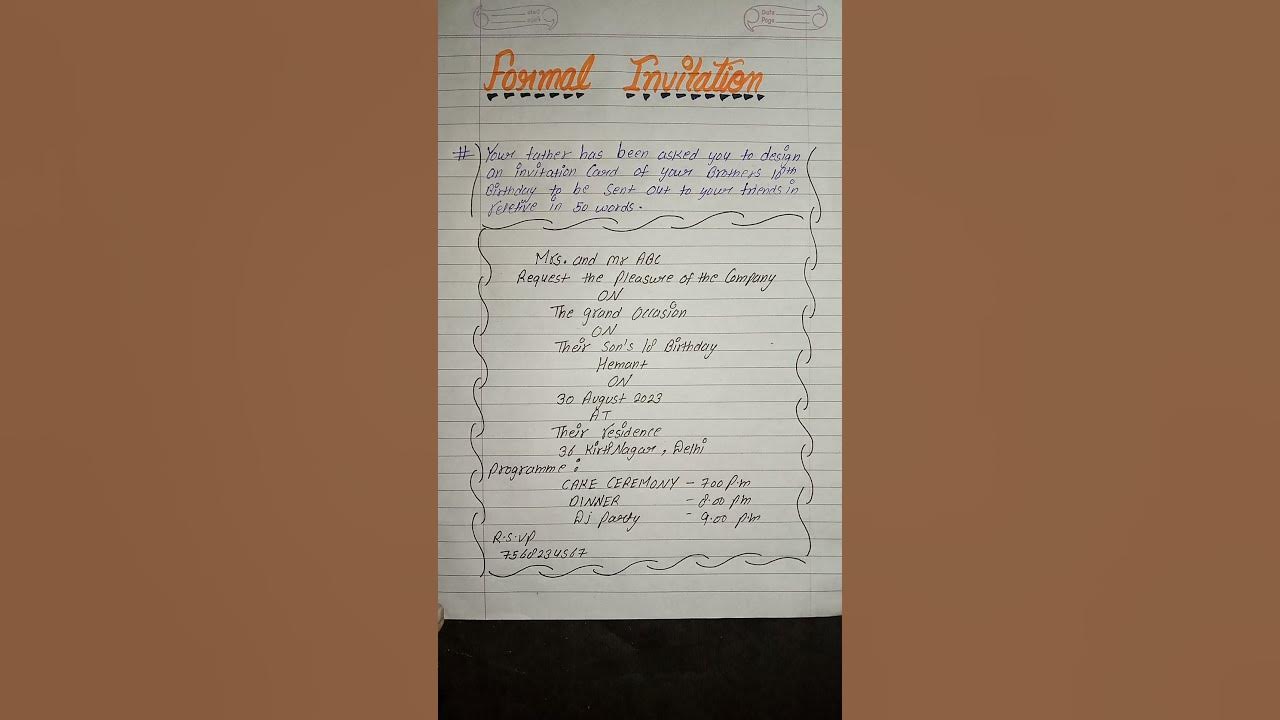 Date
Page
Date
Page
Formal Invitation
# Your father has been asked you to design
an invitation Card of your Brothers 18th
Birthday to be sent out to your friends in
reletive in 50 words.
Mrs. and mr ABC
Request the Pleasure of the Company
ON
The grand Occasion
ON
Their Son's 18 Birthday
Hemant
ON
30 August 2023
AT
Their residence
36 Kirti Nagar, Delhi
Programme :
CAKE CEREMONY - 7.00 P.m
DINNER - 8.00 pm
Dj party - 9.00 p.m
R.S.VP
7568234567